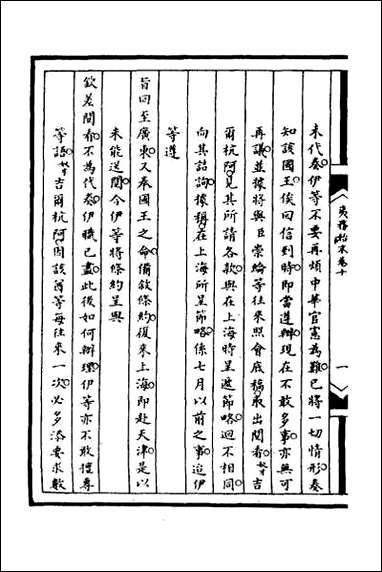 夷務始末卷十
一
未代奏伊等不要再煩中華官憲為難已將一切情形奏
知該國王俟回信到時即當遵辦現在不敢多事亦無可
再議並據將與臣崇綸等往來照會底稿取出閱看奴才吉
爾杭阿見其所請各款與在上海時呈遞節略迥不相同
向其詰詢據稱在上海所呈節略係七月以前之事迨伊
等遵
旨回至廣東又奉國王之命備敘條約復來上海即赴天津是以
未能送閱今伊等將條約呈與
欽差閱看不為代奏伊職已盡此後如何辦理伊等亦不敢擅專
等語奴才吉爾杭阿因該酋等每往來一次必多添要求數